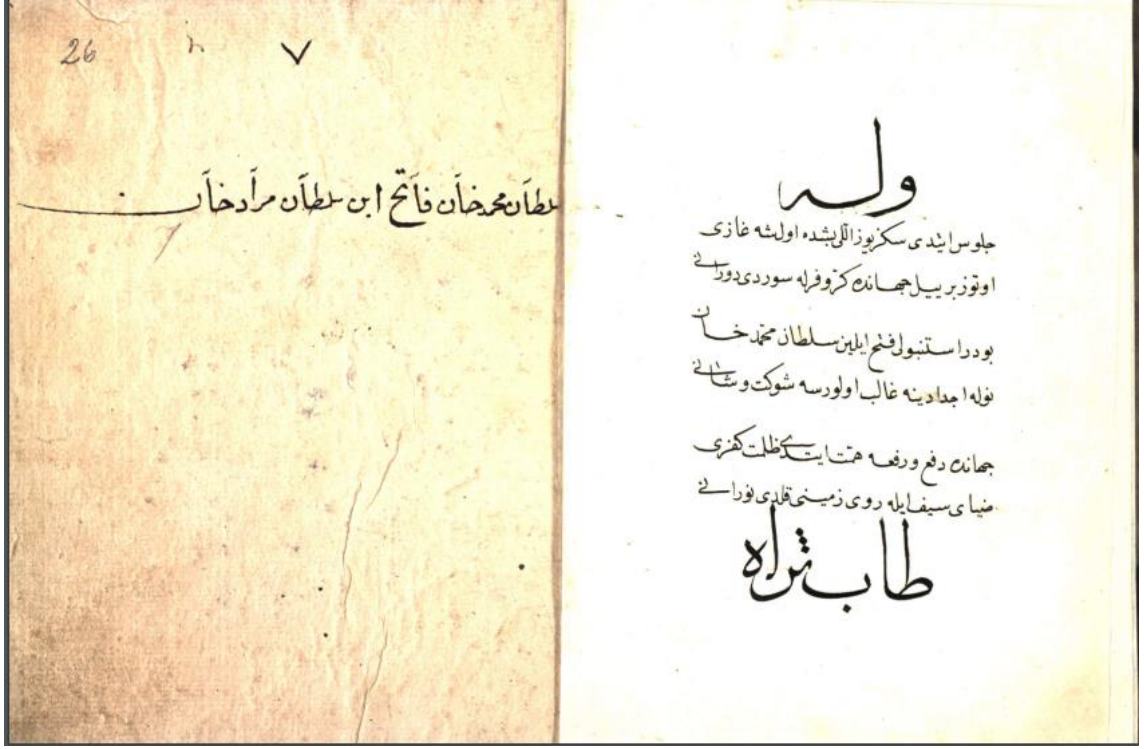 26 ٧
سلطان محمد خان فاتح ابن سلطان مراد خان
وله
جلوس ايتدى سكز يوز اللى بشده اول شه غازى
اوتوز بر ييل جهانده كرّ و فرله سوردى دورانى
بودر استنبولى فتح ايلين سلطان محمّد خان
نوله اجدادينه غالب اولورسه شوكت و شانى
جهانده دفع و رفعه همّت ايتدى ظلمت كفرى
ضياى سيف ايله روى زمينى قلدى نورانى
طاب ثراه